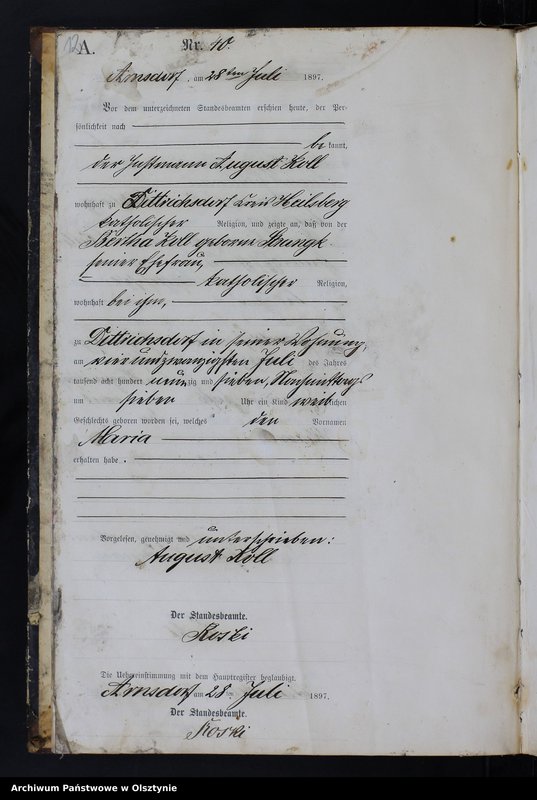 12
A.
Nr. 40.
Arnsdorf, am 28ten Juli 1897.
Vor dem unterzeichneten Standesbeamten erschien heute, der Per-
sönlichkeit nach
be kannt,
der Instmann August Koll
wohnhaft zu Dittrichsdorf Kreis Heilsberg
katholischer Religion, und zeigte an, daß von der
Bertha Koll geborne
seiner Ehefrau,
katholischer Religion,
wohnhaft bei ihm,
zu Dittrichsdorf in seiner Wohnung,
am vierundzwanzigsten Juli des Jahres
tausend acht hundert neunzig und sieben, Nachmittags
um sieben Uhr ein Kind weiblichen
Geschlechts geboren worden sei, welches den Vornamen
Maria
erhalten habe.
Vorgelesen, genehmigt und unterschrieben:
August Koll
Der Standesbeamte.
Koski
Die Uebereinstimmung mit dem Hauptregister beglaubigt.
Arnsdorf am 28ten Juli 1897.
Der Standesbeamte.
Koski
Archiwum Państwowe w Olsztynie